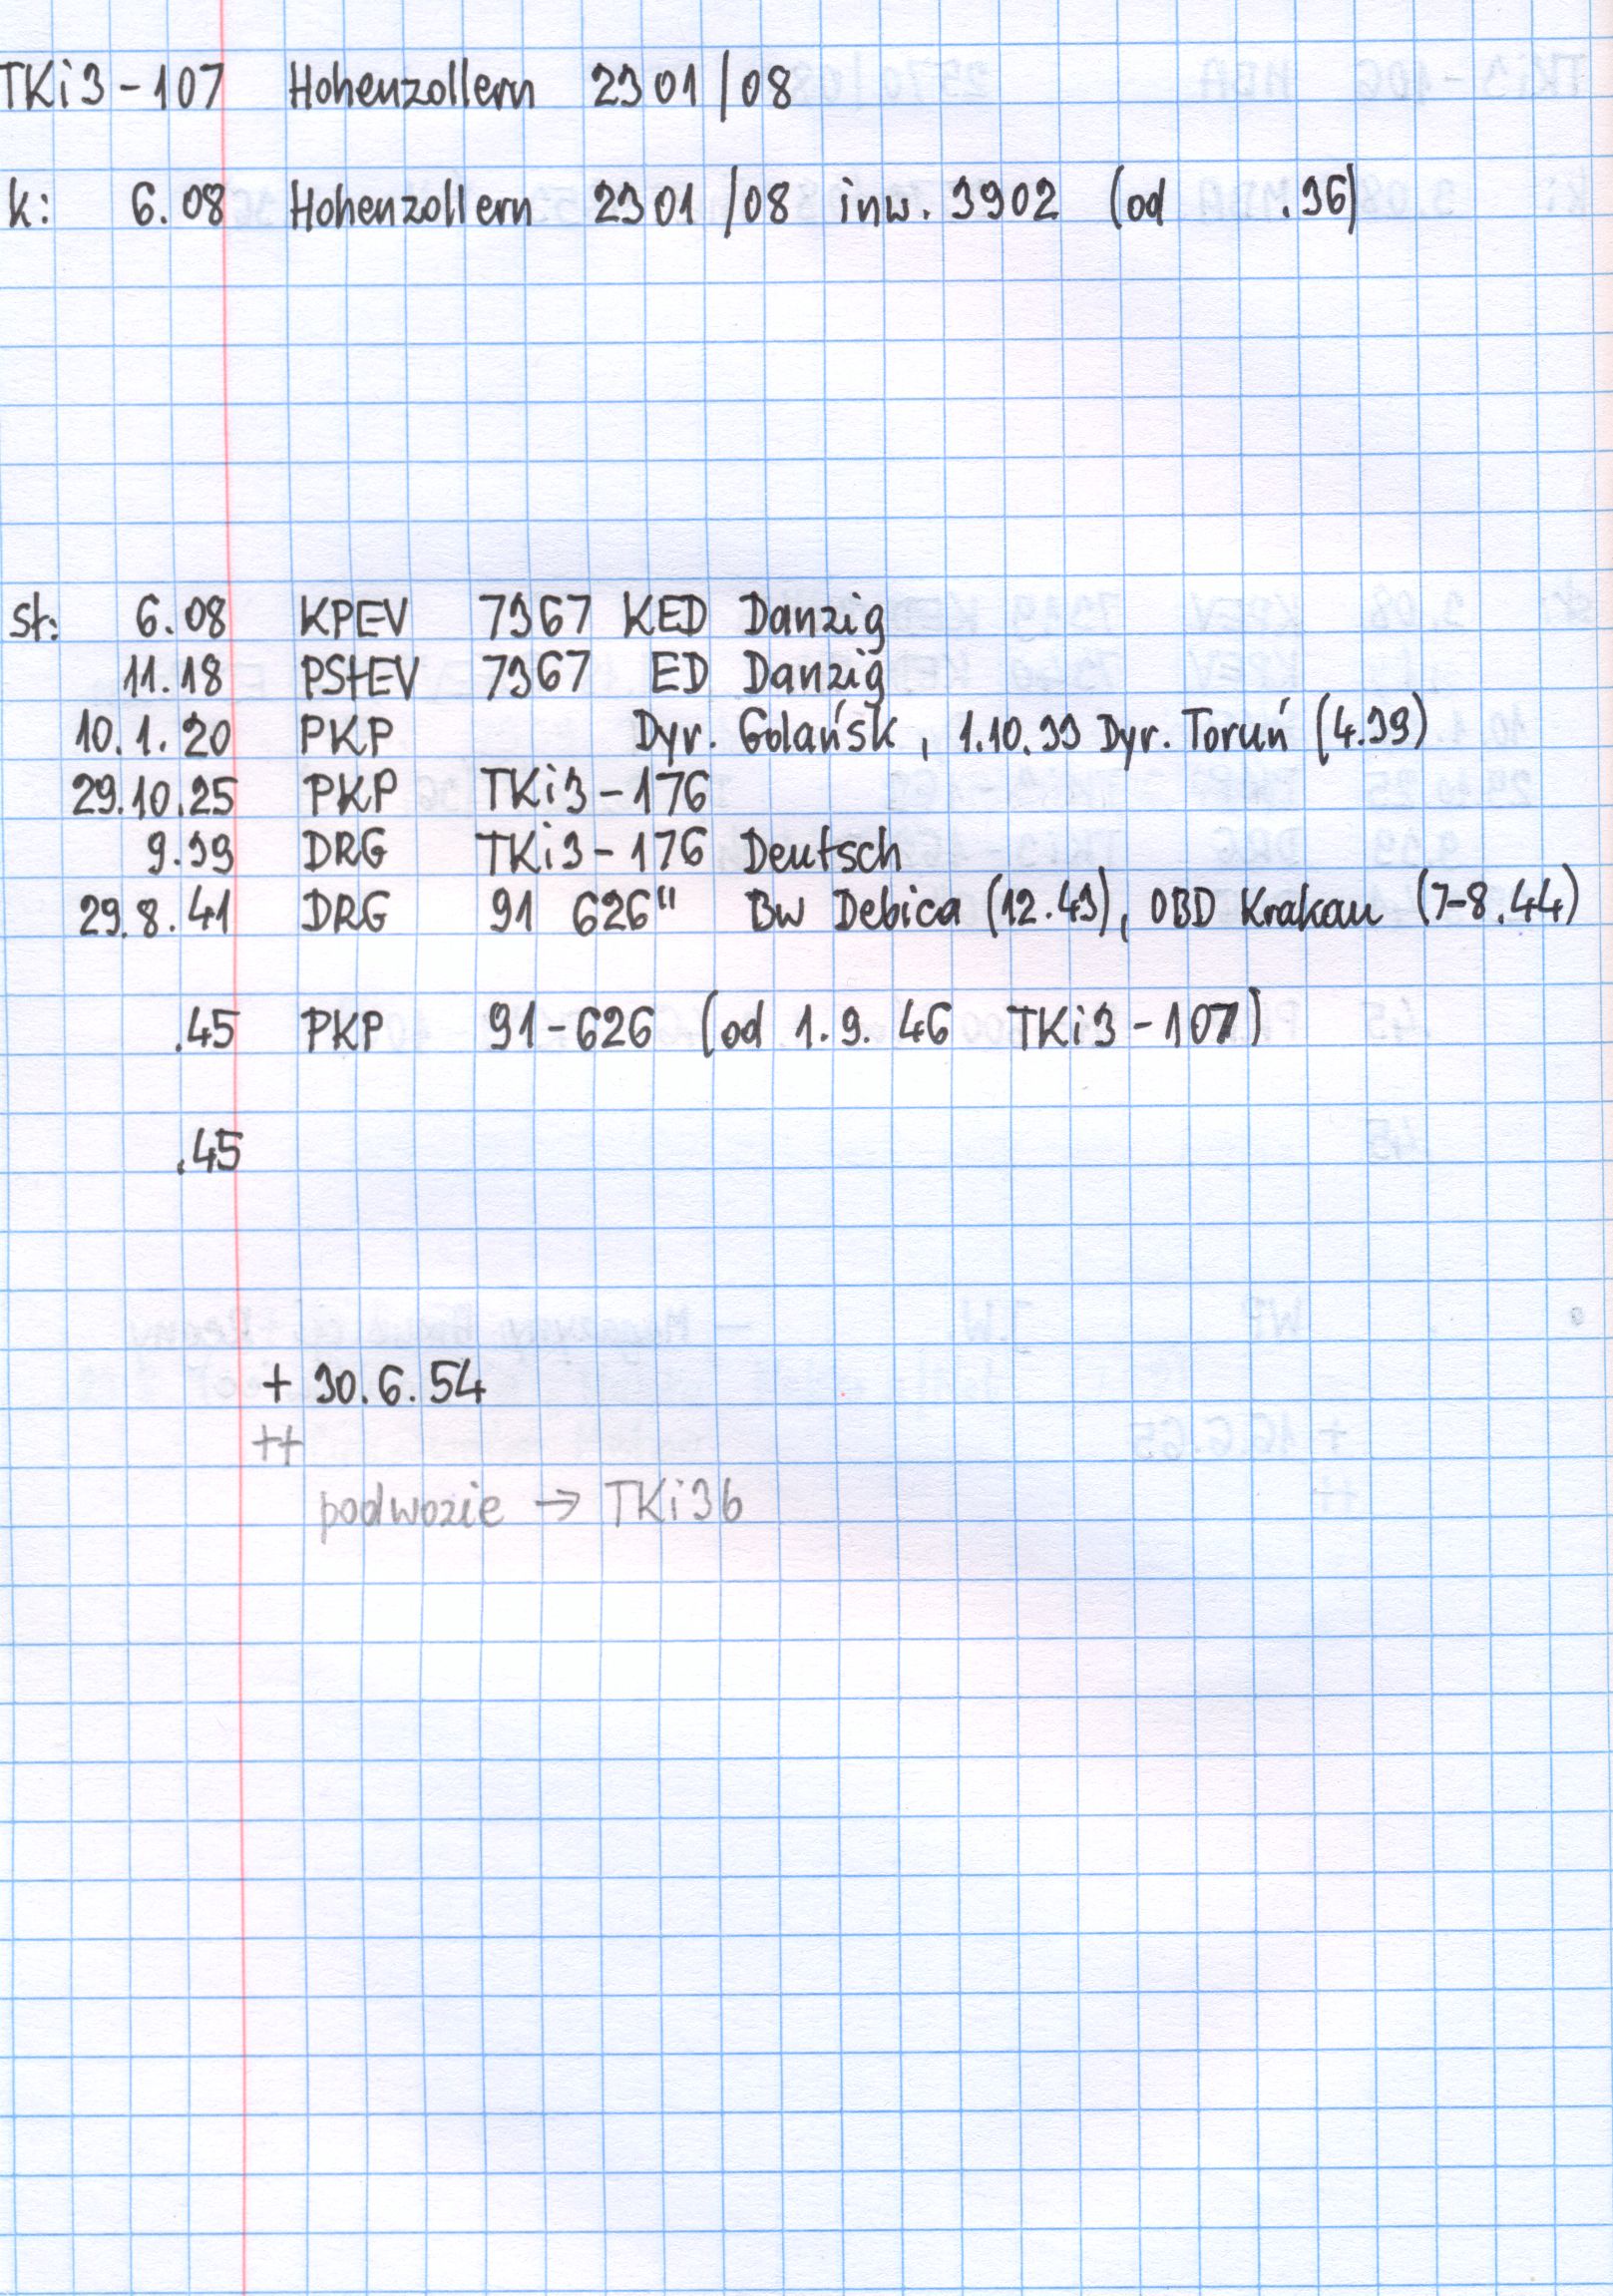 TKi3-107 Hohenzollern 2301/08
k: 6.08 Hohenzollern 2301/08 inw. 3902 (od .36)
st: 6.08 KPEV 7367 KED Danzig
11.18 PStEV 7367 ED Danzig
10.1.20 PKP Dyr. Gdańsk, 1.10.33 Dyr. Toruń (4.39)
29.10.25 PKP TKi3-176
9.39 DRG TKi3-176 Deutsch
29.8.41 DRG 91 626" Bw Debica (12.43), OBD Krakau (7-8.44)
.45 PKP 91-626 (od 1.9.46 TKi3-107)
.45
+ 30.6.54
++
podwozie → TKi3b